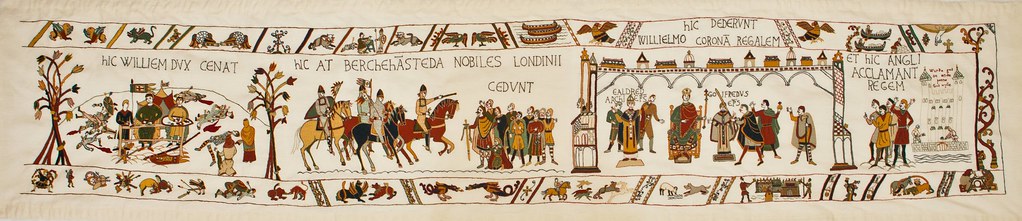 hIC WILLIEM DVX CENAT
hIC AT BERCHEhĀSTEDA NOBILES LONDINII
CEDVNT
hIC DEDERVNT
WILLIELMO CORONĀ REGALEM
EALDRED
EPS
ET hIC ANGLI
ACCLAMANT
REGEM